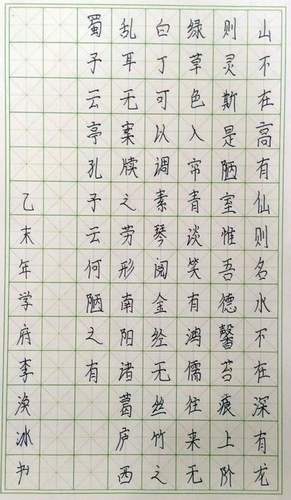 山不在高有仙则名水不在深有龙
则灵斯是陋室惟吾德馨苔痕上阶
绿草色入帘青谈笑有鸿儒往来无
白丁可以调素琴阅金经无丝竹之
乱耳无案牍之劳形南阳诸葛庐西
蜀子云亭孔子云何陋之有
乙未年学府李涣冰书